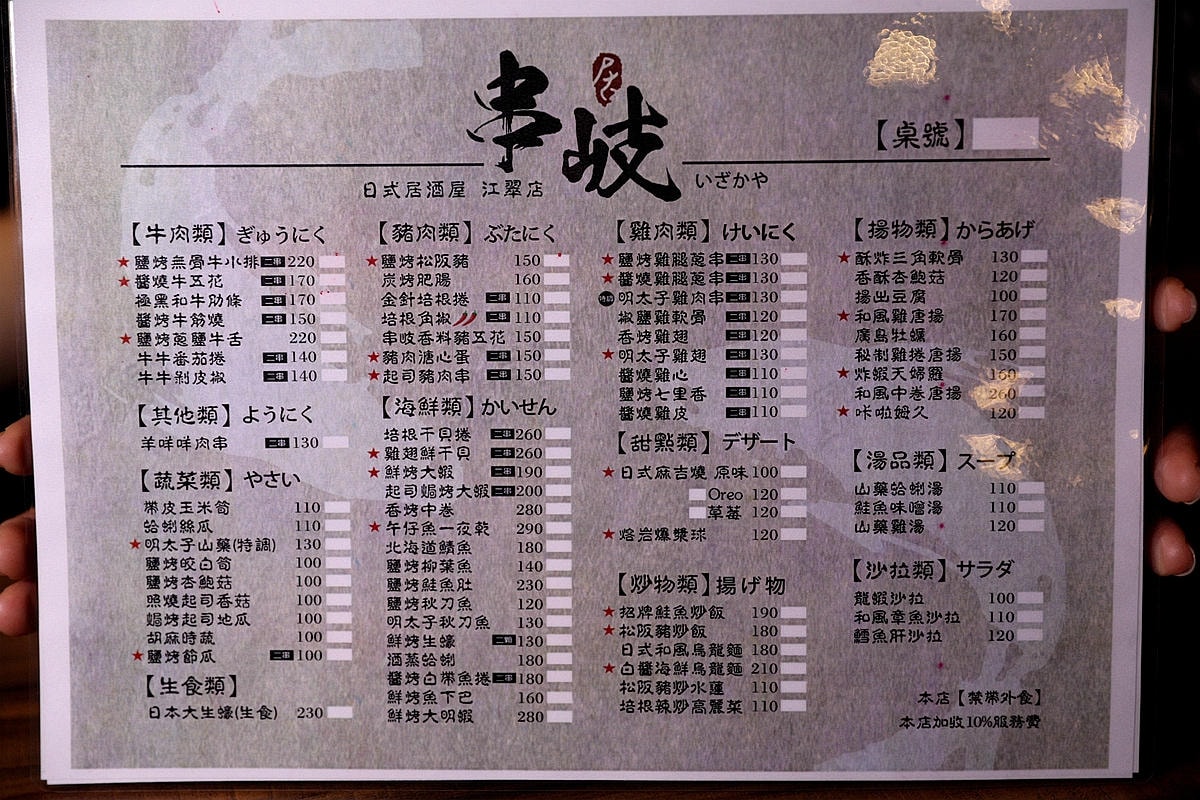 串岐
居
【桌號】
日式居酒屋 江翠店
いざかや
【牛肉類】ぎゅうにく
★鹽烤無骨牛小排 二串 220
★醬燒牛五花 二串 170
極黑和牛肋條 二串 170
醬烤牛筋燒 二串 150
★鹽烤蔥鹽牛舌 220
牛牛番茄捲 二串 140
牛牛剝皮椒 二串 140
【其他類】ようにく
羊咩咩肉串 二串 130
【蔬菜類】やさい
帶皮玉米筍 110
蛤蜊絲瓜 110
★明太子山藥(特調) 130
鹽烤皎白筍 100
鹽烤杏鮑菇 100
照燒起司香菇 100
焗烤起司地瓜 100
胡麻時蔬 100
★鹽烤節瓜 二串 100
【生食類】
日本大生蠔(生食) 230
【豬肉類】ぶたにく
★鹽烤松阪豬 150
炭烤肥腸 160
金針培根捲 二串 110
培根角椒 二串 110
串岐香料豬五花 150
★豬肉溏心蛋 二串 150
★起司豬肉串 二串 150
【海鮮類】かいせん
培根干貝捲 二串 260
★雞翅鮮干貝 二串 260
★鮮烤大蝦 二串 190
起司焗烤大蝦 二串 200
香烤中卷 280
★午仔魚一夜乾 290
北海道鯖魚 180
鹽烤柳葉魚 140
鹽烤鮭魚肚 230
鹽烤秋刀魚 120
明太子秋刀魚 130
鮮烤生蠔 二顆 130
酒蒸蛤蜊 180
醬烤白帶魚捲 二串 180
鮮烤魚下巴 160
鮮烤大明蝦 280
【雞肉類】けいにく
★鹽烤雞腿蔥串 二串 130
★醬燒雞腿蔥串 二串 130
明太子雞肉串 二串 130
椒鹽雞軟骨 二串 120
香烤雞翅 二串 120
★明太子雞翅 二串 130
醬燒雞心 二串 110
鹽烤七里香 二串 110
醬燒雞皮 二串 110
【甜點類】デザート
★日式麻吉燒 原味 100
Oreo 120
草莓 120
★熔岩爆漿球 120
【炒物類】揚げ物
★招牌鮭魚炒飯 190
★松阪豬炒飯 180
日式和風烏龍麵 180
★白醬海鮮烏龍麵 210
松阪豬炒水蓮 110
培根辣炒高麗菜 110
【揚物類】からあげ
★酥炸三角軟骨 130
香酥杏鮑菇 120
揚出豆腐 100
★和風雞唐揚 170
廣島牡蠣 160
秘制雞捲唐揚 150
★炸蝦天婦羅 160
和風中卷唐揚 260
★咔啦姆久 120
【湯品類】スープ
山藥蛤蜊湯 110
鮭魚味噌湯 110
山藥雞湯 120
【沙拉類】サラダ
龍蝦沙拉 100
和風章魚沙拉 110
鱈魚肝沙拉 120
本店【禁帶外食】
本店加收10%服務費